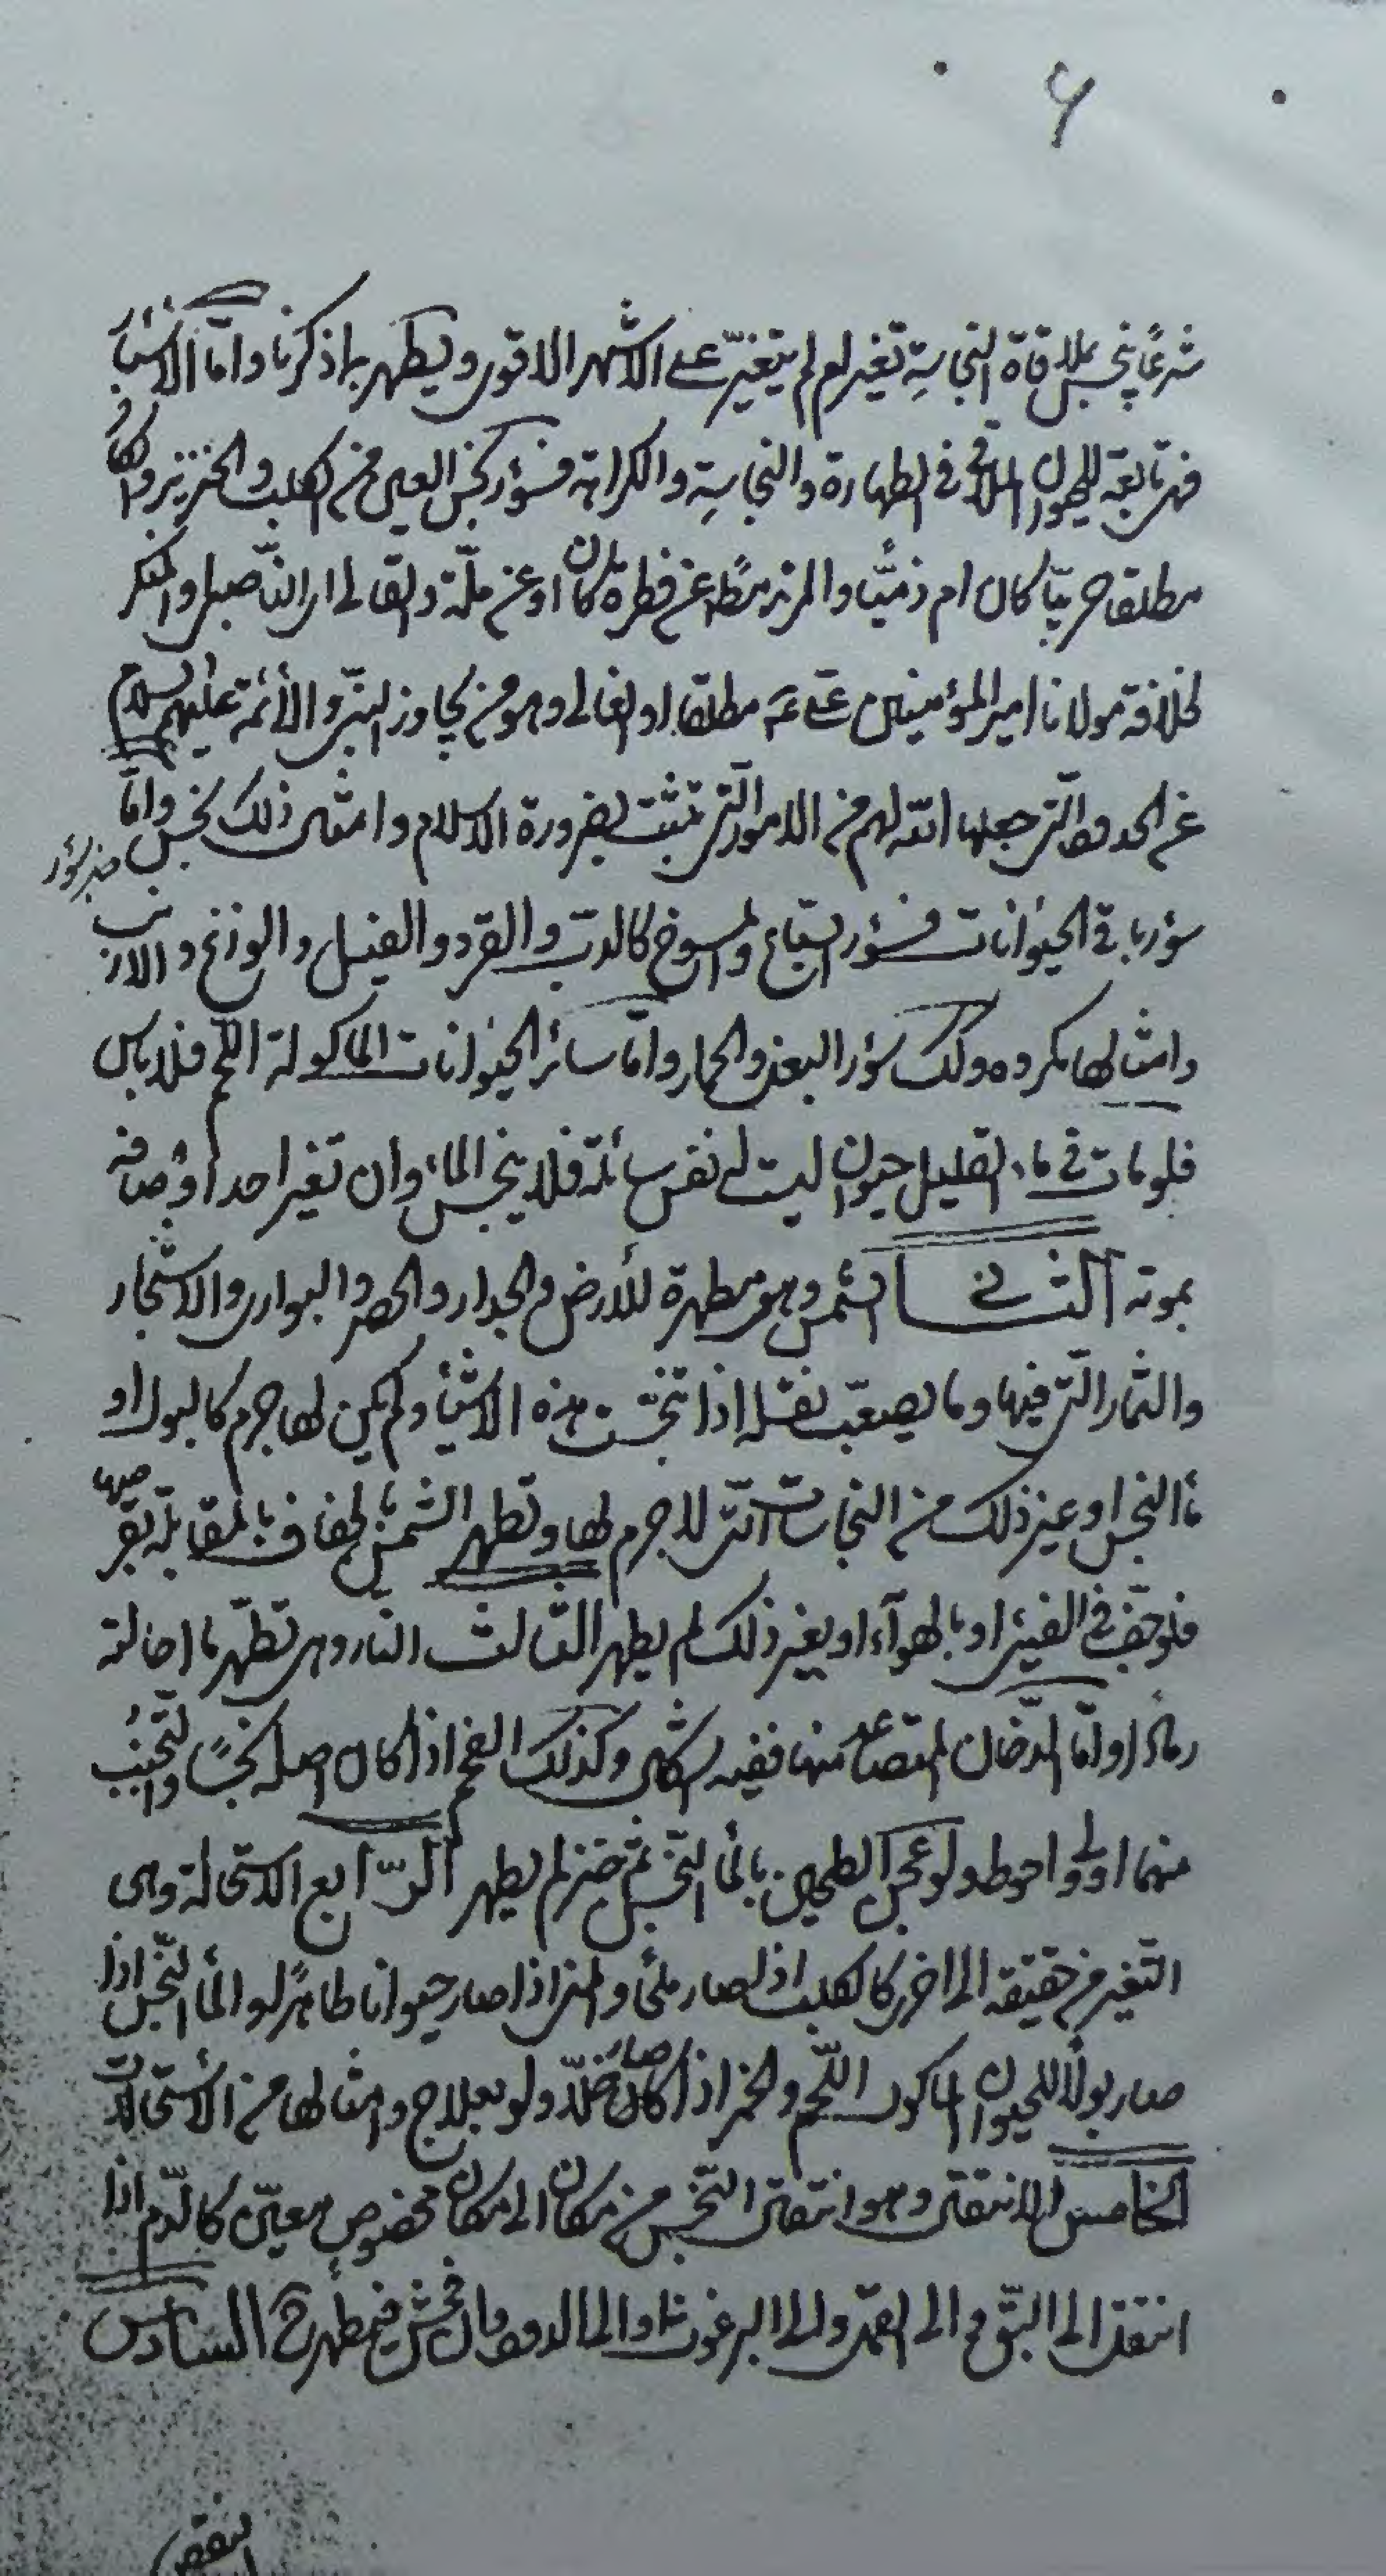 ۶
شرعًا ينجس بملاقاة النجاسة تغير ام لم يتغيّر على الاشهر الاقوى ويطهر بما ذكرنا وامّا الاسئار
فهى تابعة للحيوان الملاقى فى الطهارة والنجاسة والكراهة فسؤر نجس العين من الكلب والخنزير والكافر
مطلقا حربيّا كان ام ذميّا والمرتد مطلقا عن فطرة كان او عن ملّة والناصبى والمنكر
لخلافة مولانا امير المؤمنين مطلقا او الغالى وهو من يجاوز النبىّ والأئمّة عليهم السلام
عن الحدود الّتى جعلها الله لهم من الامور الّتى تثبت بضرورة الاسلام وامثال ذلك نجس وامّا
سؤر باقى الحيوانات فسؤر السباع والمسوخ كالدب والقرد والفيل والوزغ والارنب
وامثالها مكروه وكذلك سؤر البغل والحمار وامّا سائر الحيوانات الماكولة اللحم فلا باس
فلو مات فى ماء القليل حيوان ليست له نفس سائلة فلا ينجس الماء وان تغير احد اوصافه
بموته الثانى الشمس وهى مطهرة للأرض والجدار والحصر والبوارى والاشجار
والثمار الّتى فيها وما يصعب نقله اذا تنجّست هذه الاشياء ولم يكن لها جرم كالبول او
ماء النجس او غير ذلك من النجاسات الّتى لا جرم لها وتطهر الشمس بالجفاف بالمقابلة بقرصها
فلو جفّ فى الفيئ او بالهوآء او بغير ذلك لم يطهر الثالث النّار وهى تطهّر ما احالته
رمادًا وامّا الدّخان المتصاعد منها ففيه اشكال وكذلك الفحم اذا كان اصله نجسًا والتجنّب
منهما اولى واحوط ولو عجن الطحين بالماء النّجس ثم خبز لم يطهر الرّابع الاستحالة وهى
التغير من حقيقة الى اخرى كالكلب اذا صار ملحًا والمنى اذا صار حيوانا طاهرًا او الماء النّجس اذا
صار بولًا للحيوان الماكول اللّحم والخمر اذا صار خلّا ولو بعلاج وامثالها من الاستحالات
الخامس الانتقال وهو انتقال النّجس من مكان الى مكان مخصوص معيّن كالدّم اذا
انتقل الى البقّ والى القمّل والى البرغوث السادس